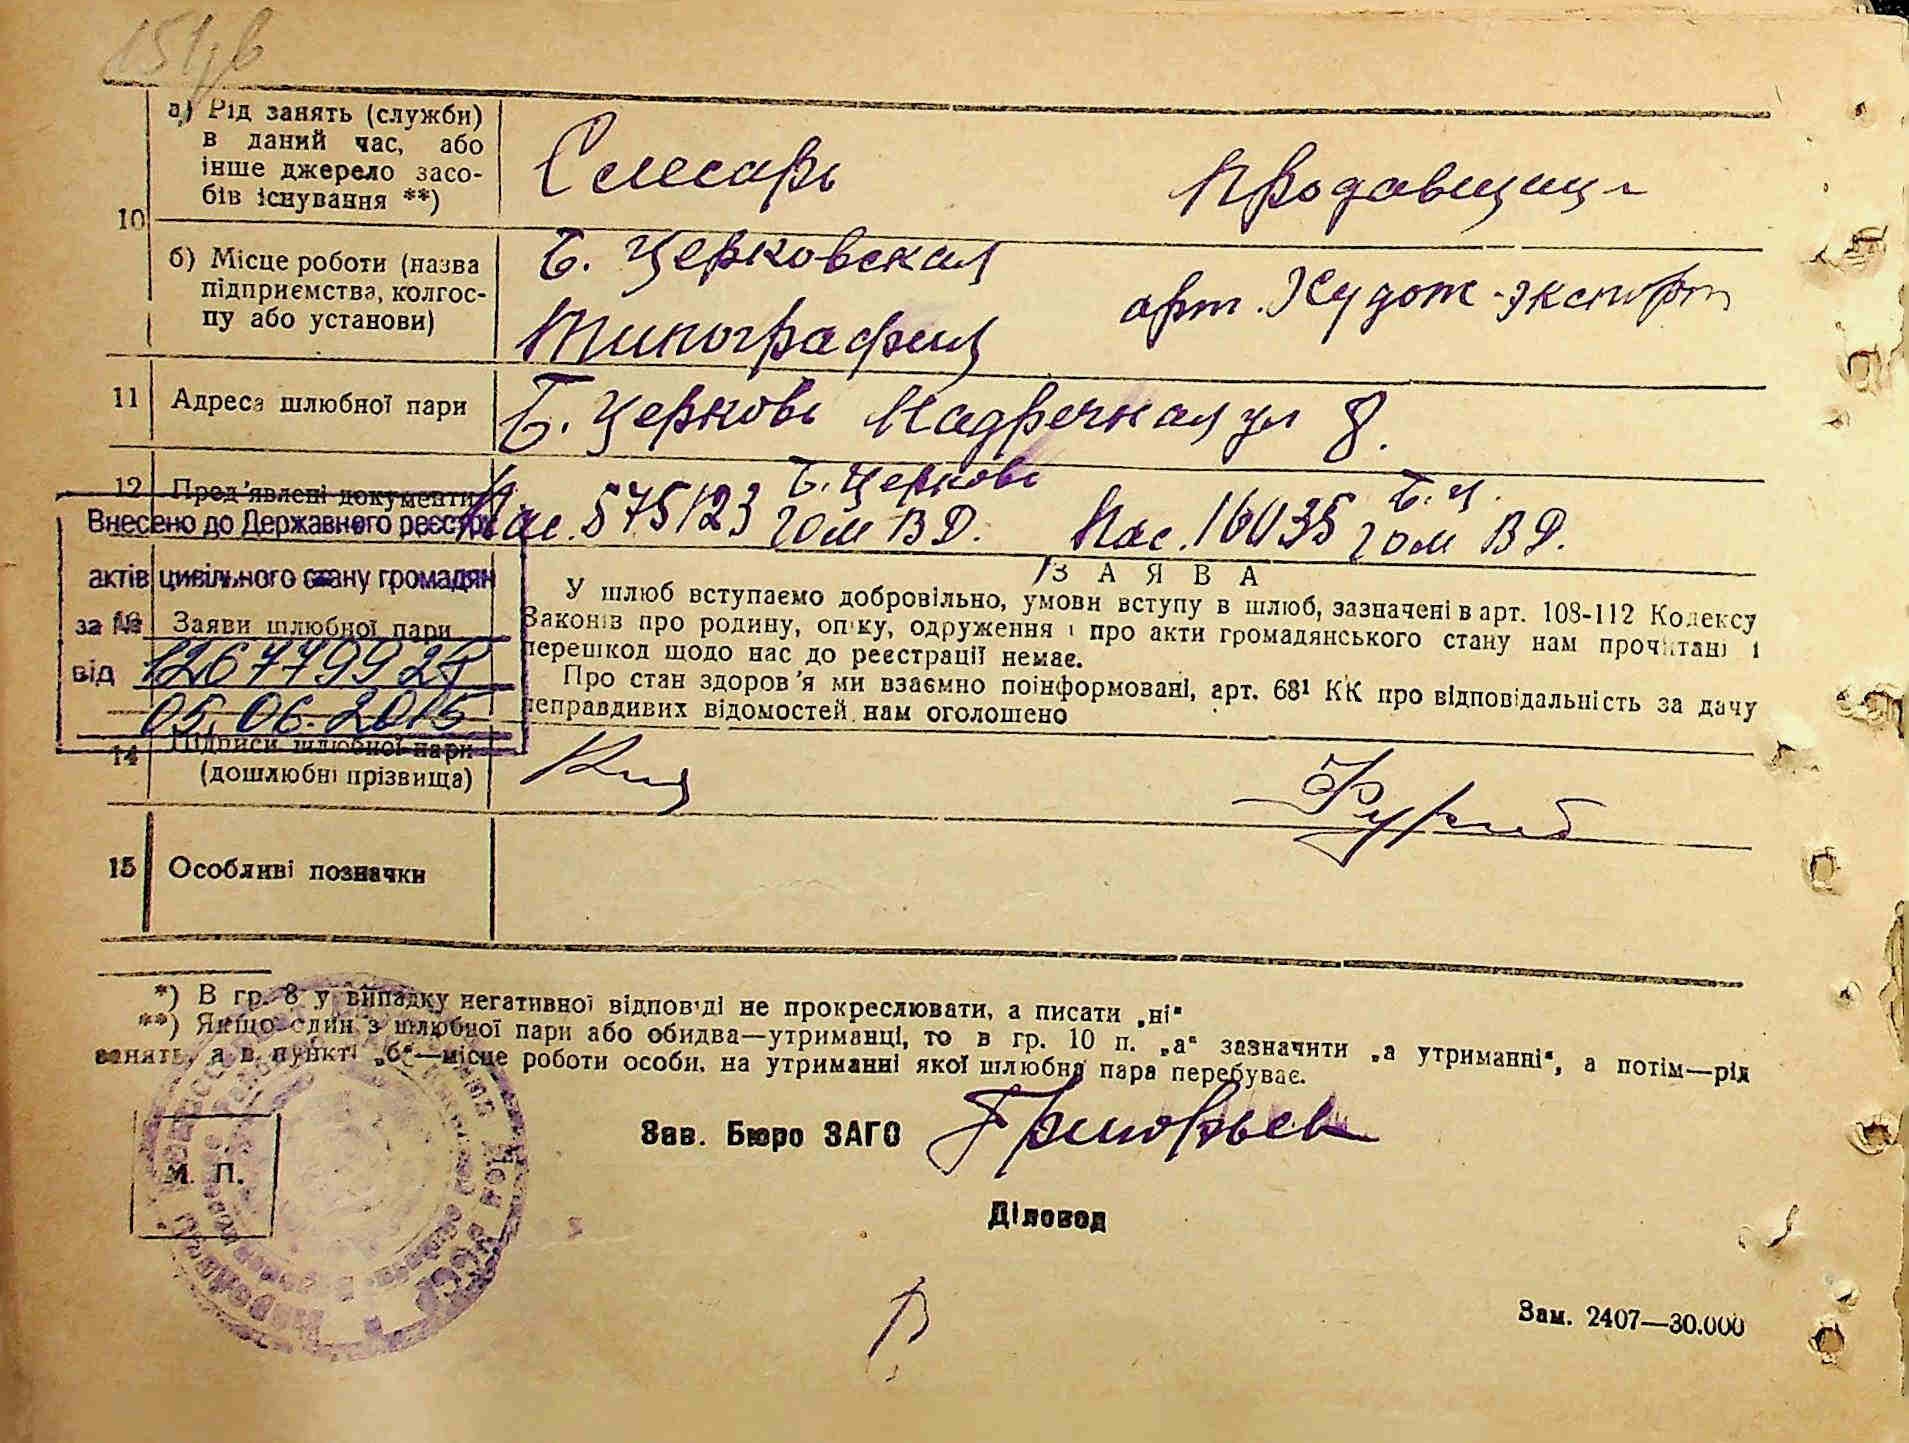 а) Рід занять (служби)
в даний час, або
інше джерело засо-
бів існування **)
Слесарь
Продавщица
10
б) Місце роботи (назва
підприємства, колгос-
пу або установи)
Б. Церковская
Типография
арт. Худож-экспорт
11
Адреса шлюбної пари
Б. Церковь Надречная ул 8.
12
Пред'явлені документи
Пас. 575123 Б. Церковь
ГОМ ВД.
Пас. 16035 Б. Ц.
ГОМ ВД.
Внесено до Державного реєстру
актів цивільного стану громадян
за №
126779927
від
05.06.2015
Заяви шлюбної пари
ЗАЯВА
У шлюб вступаємо добровільно, умови вступу в шлюб, зазначені в арт. 108-112 Кодексу
Законів про родину, опіку, одруження і про акти громадянського стану нам прочитані і
перешкод щодо нас до реєстрації немає.
Про стан здоров'я ми взаємно поінформовані, арт. 68¹ КК про відповідальність за дачу
неправдивих відомостей нам оголошено
14
Підписи шлюбної пари
(дошлюбні прізвища)
15
Особливі позначки
*) В гр. 8 у випадку негативної відповіді не прокреслювати, а писати „ні“
**) Якщо один з шлюбної пари або обидва—утриманці, то в гр. 10 п. „а“ зазначити „а утриманні“, а потім—рід
занять, а в пункті „б“—місце роботи особи, на утриманні якої шлюбна пара перебуває.
М. П.
Зав. Бюро ЗАГС Григорьев
Діловод
Зам. 2407—30.000